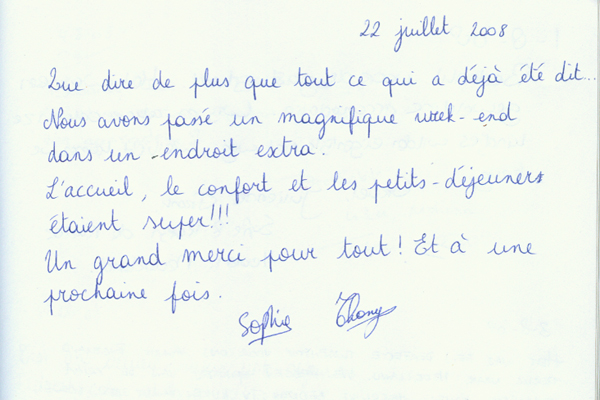 22 juillet 2008
Que dire de plus que tout ce qui a déjà été dit...
Nous avons passé un magnifique week-end
dans un endroit extra.
L'accueil, le confort et les petits-déjeuners
étaient super!!!
Un grand merci pour tout! Et à une
prochaine fois.
Sophie Thony